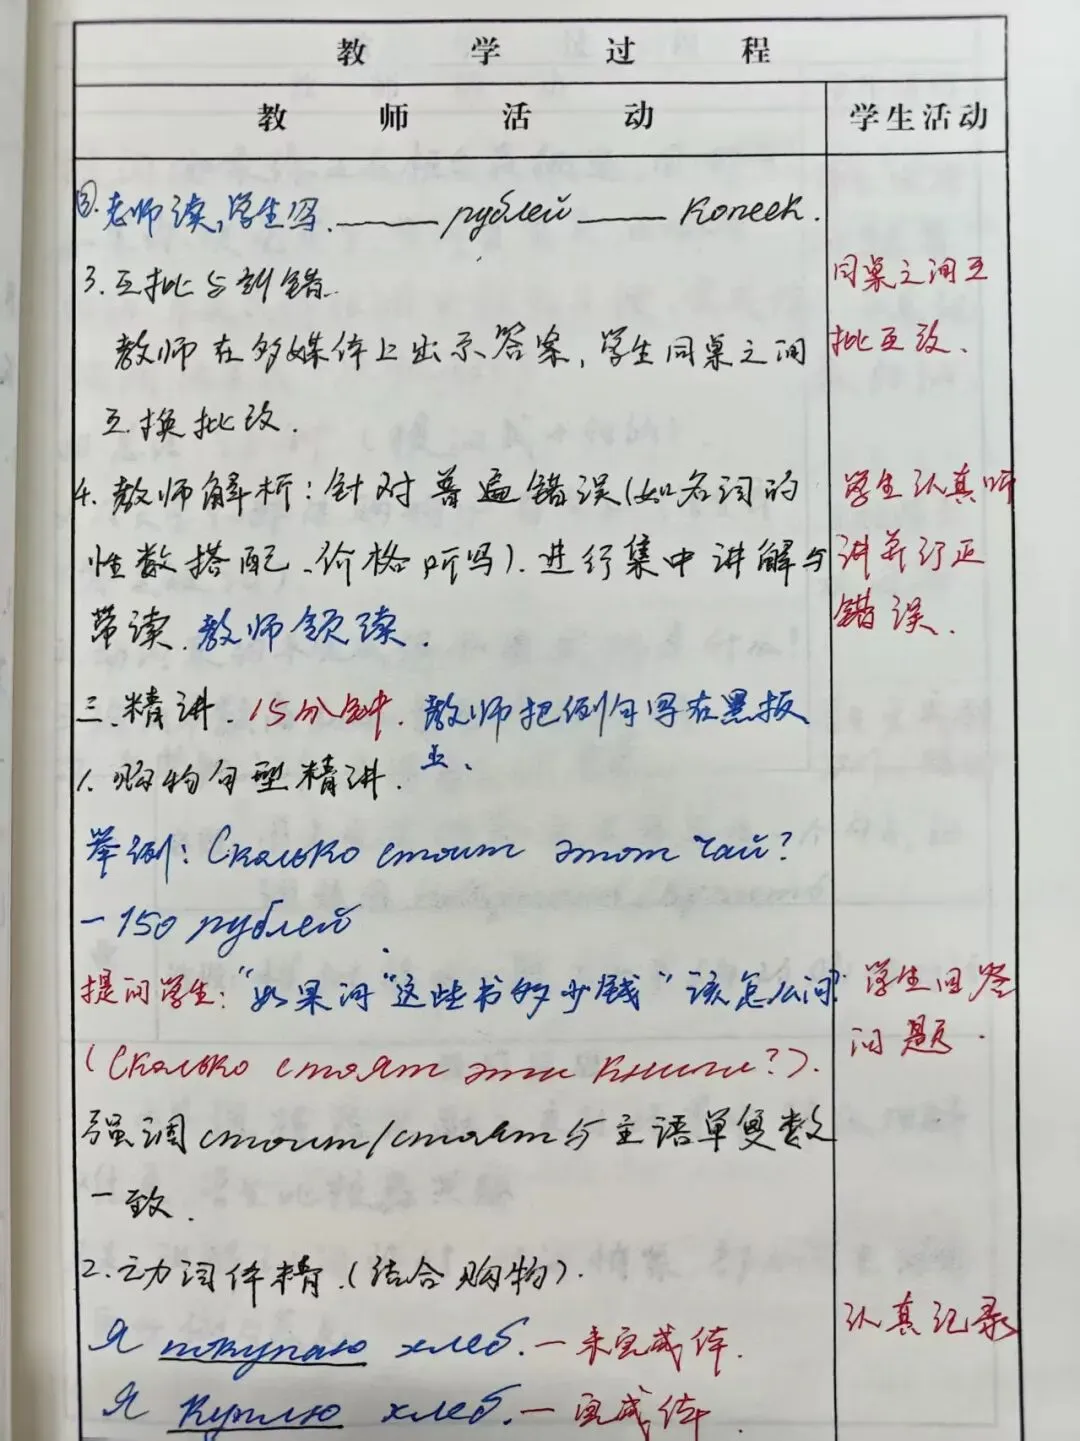 教学过程
教师活动 学生活动
③.老师读,学生写.____ рублей ____ копеек.
3.互批与纠错.
同桌之间互
教师在多媒体上出示答案,学生同桌之间
批互改.
互换批改.
4.教师解析:针对普遍错误(如名词的
学生认真听
性数搭配、价格听写).进行集中讲解与
讲并订正
带读.教师领读.
错误.
三.精讲.15分钟.教师把例句写在黑板
上、
1.购物句型精讲.
举例:Сколько стоит этот чай?
-150 рублей.
提问学生:"如果问"这些书多少钱"该怎么问?
学生回答
问题.
(Сколько стоят эти книги?).
强调 стоит/стоят与主语单复数
一致.
2.动词体精.(结合购物).
认真记录
Я покупаю хлеб.一未完成体.
Я куплю хлеб.一完成体